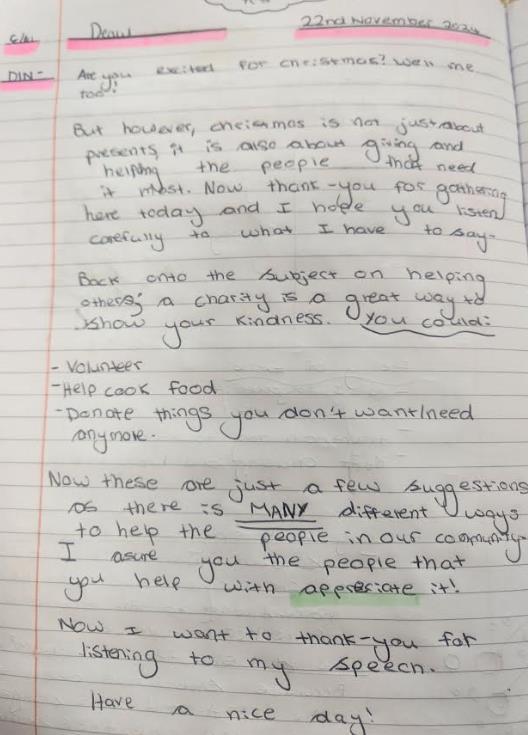 C/W Draw 22nd November 2024
DIN- Are you excited for christmas? Well me
too!
But however, christmas is not just about
presents, it is also about giving and
helping the people that need
it most. Now thank-you for gathering
here today and I hope you listen
carefully to what I have to say-
Back onto the subject on helping
others; a charity is a great way to
show your kindness. You could:
- Volunteer
- Help cook food
- Donate things you don't want/need
anymore.
Now these are just a few suggestions
as there is MANY different ways
to help the people in our community.
I asure you the people that
you help with appresiate it!
Now I want to thank-you for
listening to my speech.
Have a nice day!